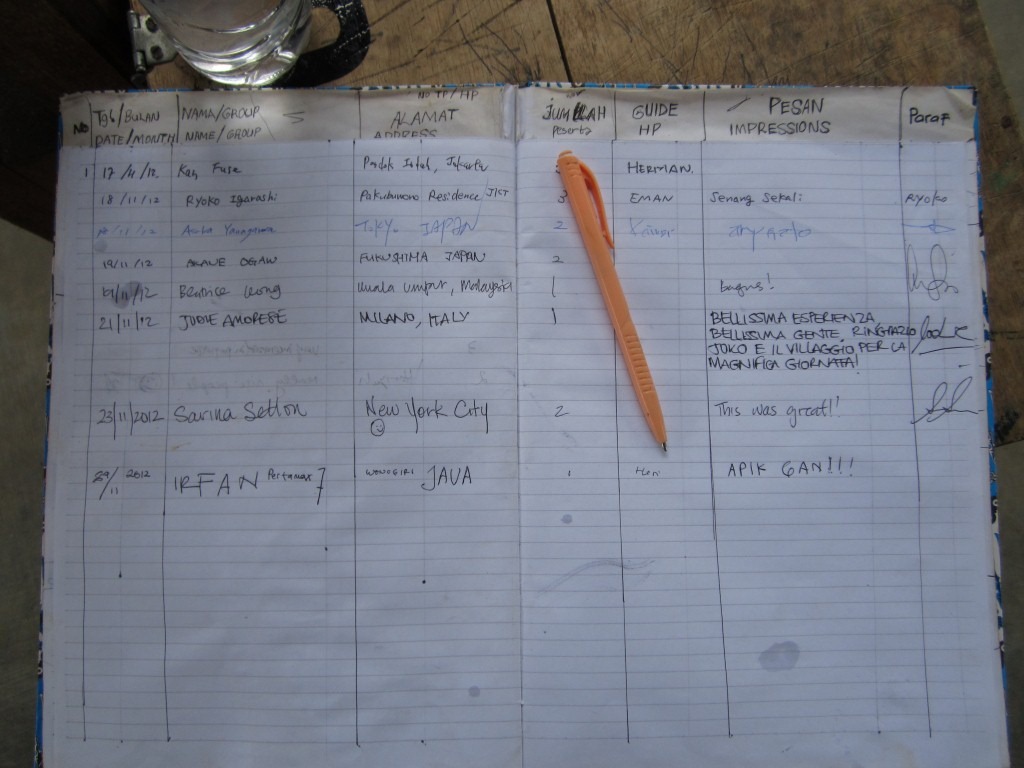 NO Tgl/BULAN NAMA/GROUP ALAMAT JUMLAH GUIDE PESAN Paraf
DATE/MONTH NAME/GROUP ADDRESS peserta HP IMPRESSIONS
1 17/11/12 Kay Fuse Pondok Indah, Jakarta HERMAN.
18/11/12 Ryoko Igarashi Pakubuwono Residence JKT 3 EMAN Senang Sekali RYOKO
/11/12 TOKYO JAPAN 2
19/11/12 AKANE OGAW FUKUSHIMA JAPAN 2
19/11/12 Beatrice Leong Kuala Lumpur, Malaysia 1 bagus!
21/11/12 JODIE AMORESE MILANO, ITALY 1 BELLISSIMA ESPERIENZA
BELLISSIMA GENTE, RINGRAZIO
JOKO E IL VILLAGGIO PER LA
MAGNIFICA GIORNATA!
23/11/2012 Sarina Setton New York City 2 This was great!!
29/11 2012 IRFAN Pertamax 7 WONOGIRI JAVA 1 Heri APIK GAN!!!